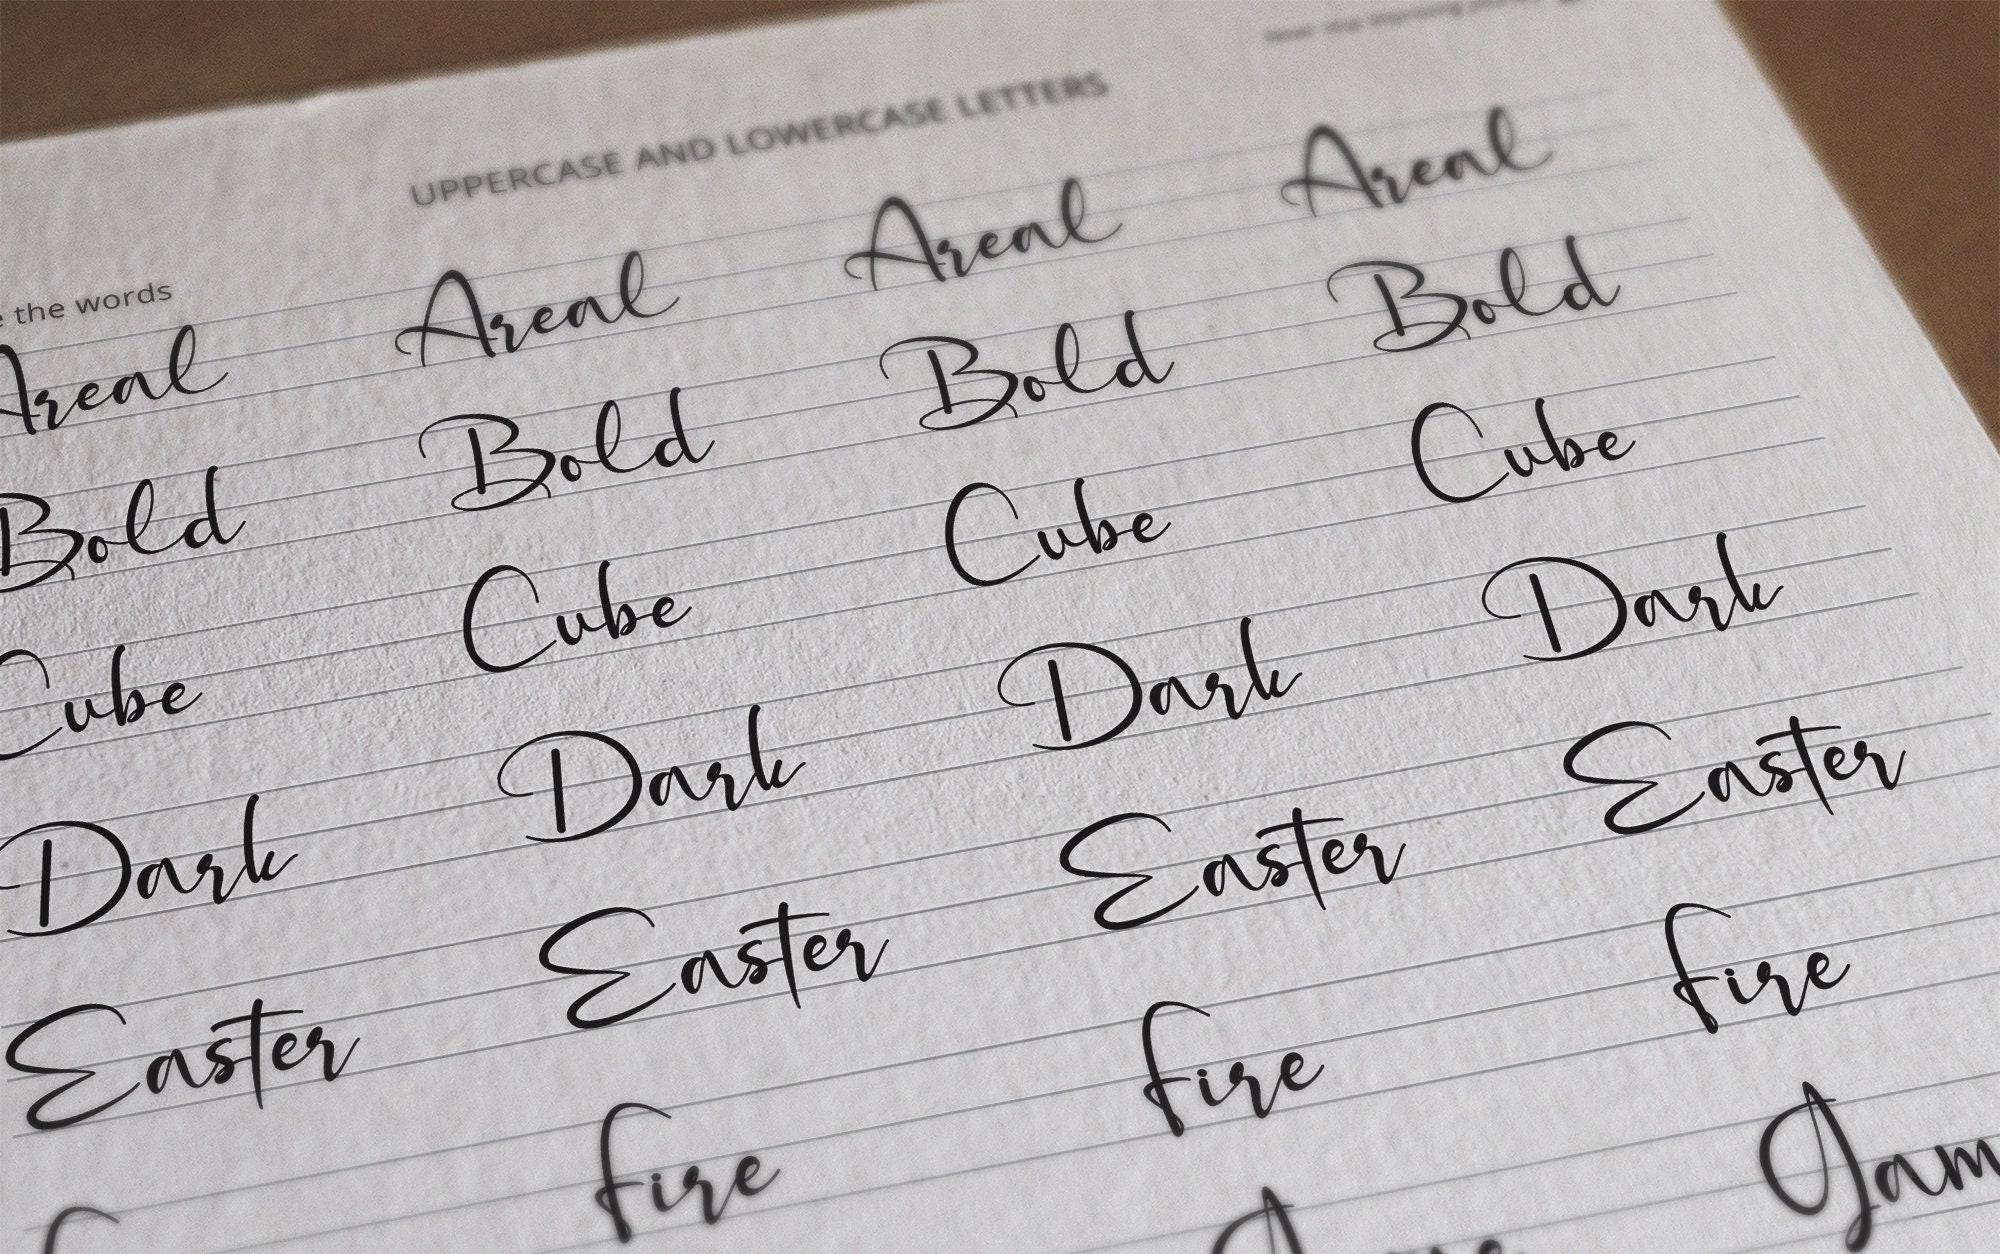 UPPERCASE AND LOWERCASE LETTERS
the words
Areal Areal Areal Areal
Bold Bold Bold Bold
Cube Cube Cube Cube
Dark Dark Dark Dark
Easter Easter Easter Easter
Fire Fire Fire